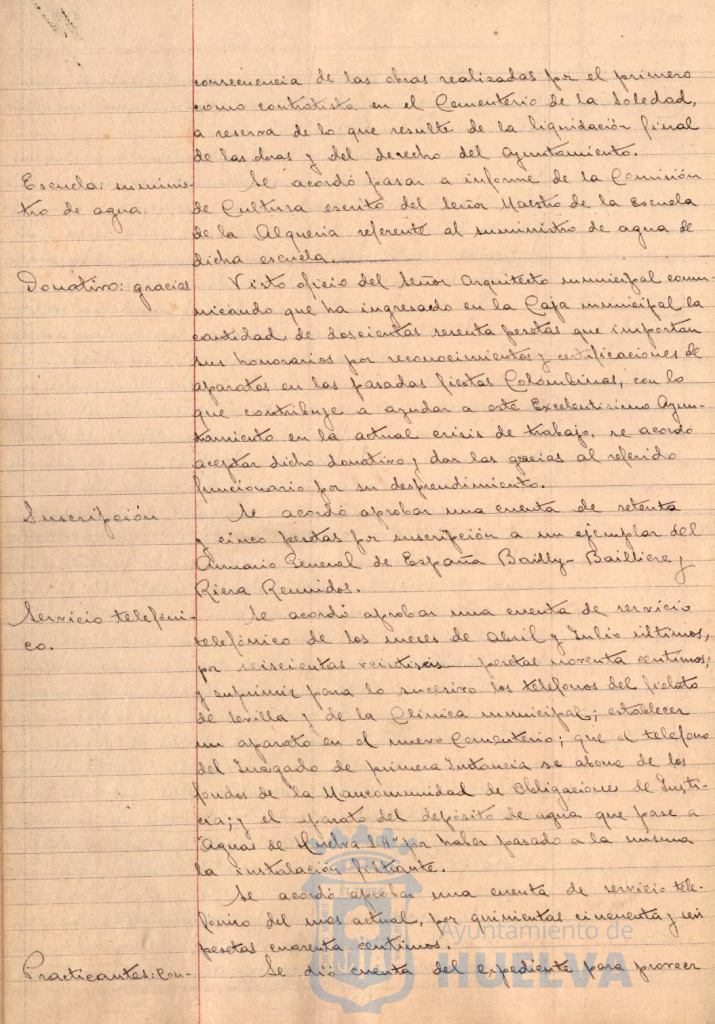 consecuencia de las obras realizadas por el primero
como contratista en el Cementerio de la Soledad,
a reserva de lo que resulte de la liquidación final
de las obras y del derecho del Ayuntamiento.
Escuela: suminis-
tro de agua.
Se acordó pasar a informe de la Comisión
de Cultura escrito del Señor Maestro de la Escuela
de la Alqueria referente al suministro de agua de
dicha escuela.
Donativo: gracias
Visto oficio del Señor Arquitecto municipal comu-
nicando que ha ingresado en la Caja municipal la
cantidad de doscientas sesenta pesetas que importan
sus honorarios por reconocimientos y certificaciones de
aparatos en las pasadas fiestas Colombinas, con lo
que contribuye a ayudar a este Excelentísimo Ayun-
tamiento en la actual crisis de trabajo, se acordó
aceptar dicho donativo y dar las gracias al referido
funcionario por su desprendimiento.
Suscripción
Se acordó aprobar una cuenta de setenta
y cinco pesetas por suscripción a un ejemplar del
Anuario General de España Bailly-Bailliere y
Riera Reunidos.
Servicio telefóni-
co.
Se acordó aprobar una cuenta de servicio
telefónico de los meses de Abril y Julio últimos,
por seiscientas veintiseis pesetas noventa centimos;
y suprimir para lo sucesivo los telefonos del fielato
de Sevilla y de la Clínica municipal; establecer
un aparato en el nuevo Cementerio; que el telefono
del Juzgado de primera Instancia se abone de los
fondos de la Mancomunidad de Obligaciones de Justi-
cia; y el aparato del depósito de agua que pase a
"Aguas de Huelva S.A" por haber pasado a la misma
la instalación filtrante.
Se acordó aprobar una cuenta de servicio tele-
fónico del mes actual, por quinientas cincuenta y seis
pesetas cuarenta centimos.
Practicantes: con-
Se dió cuenta del expediente para proveer
Ayuntamiento de
HUELVA